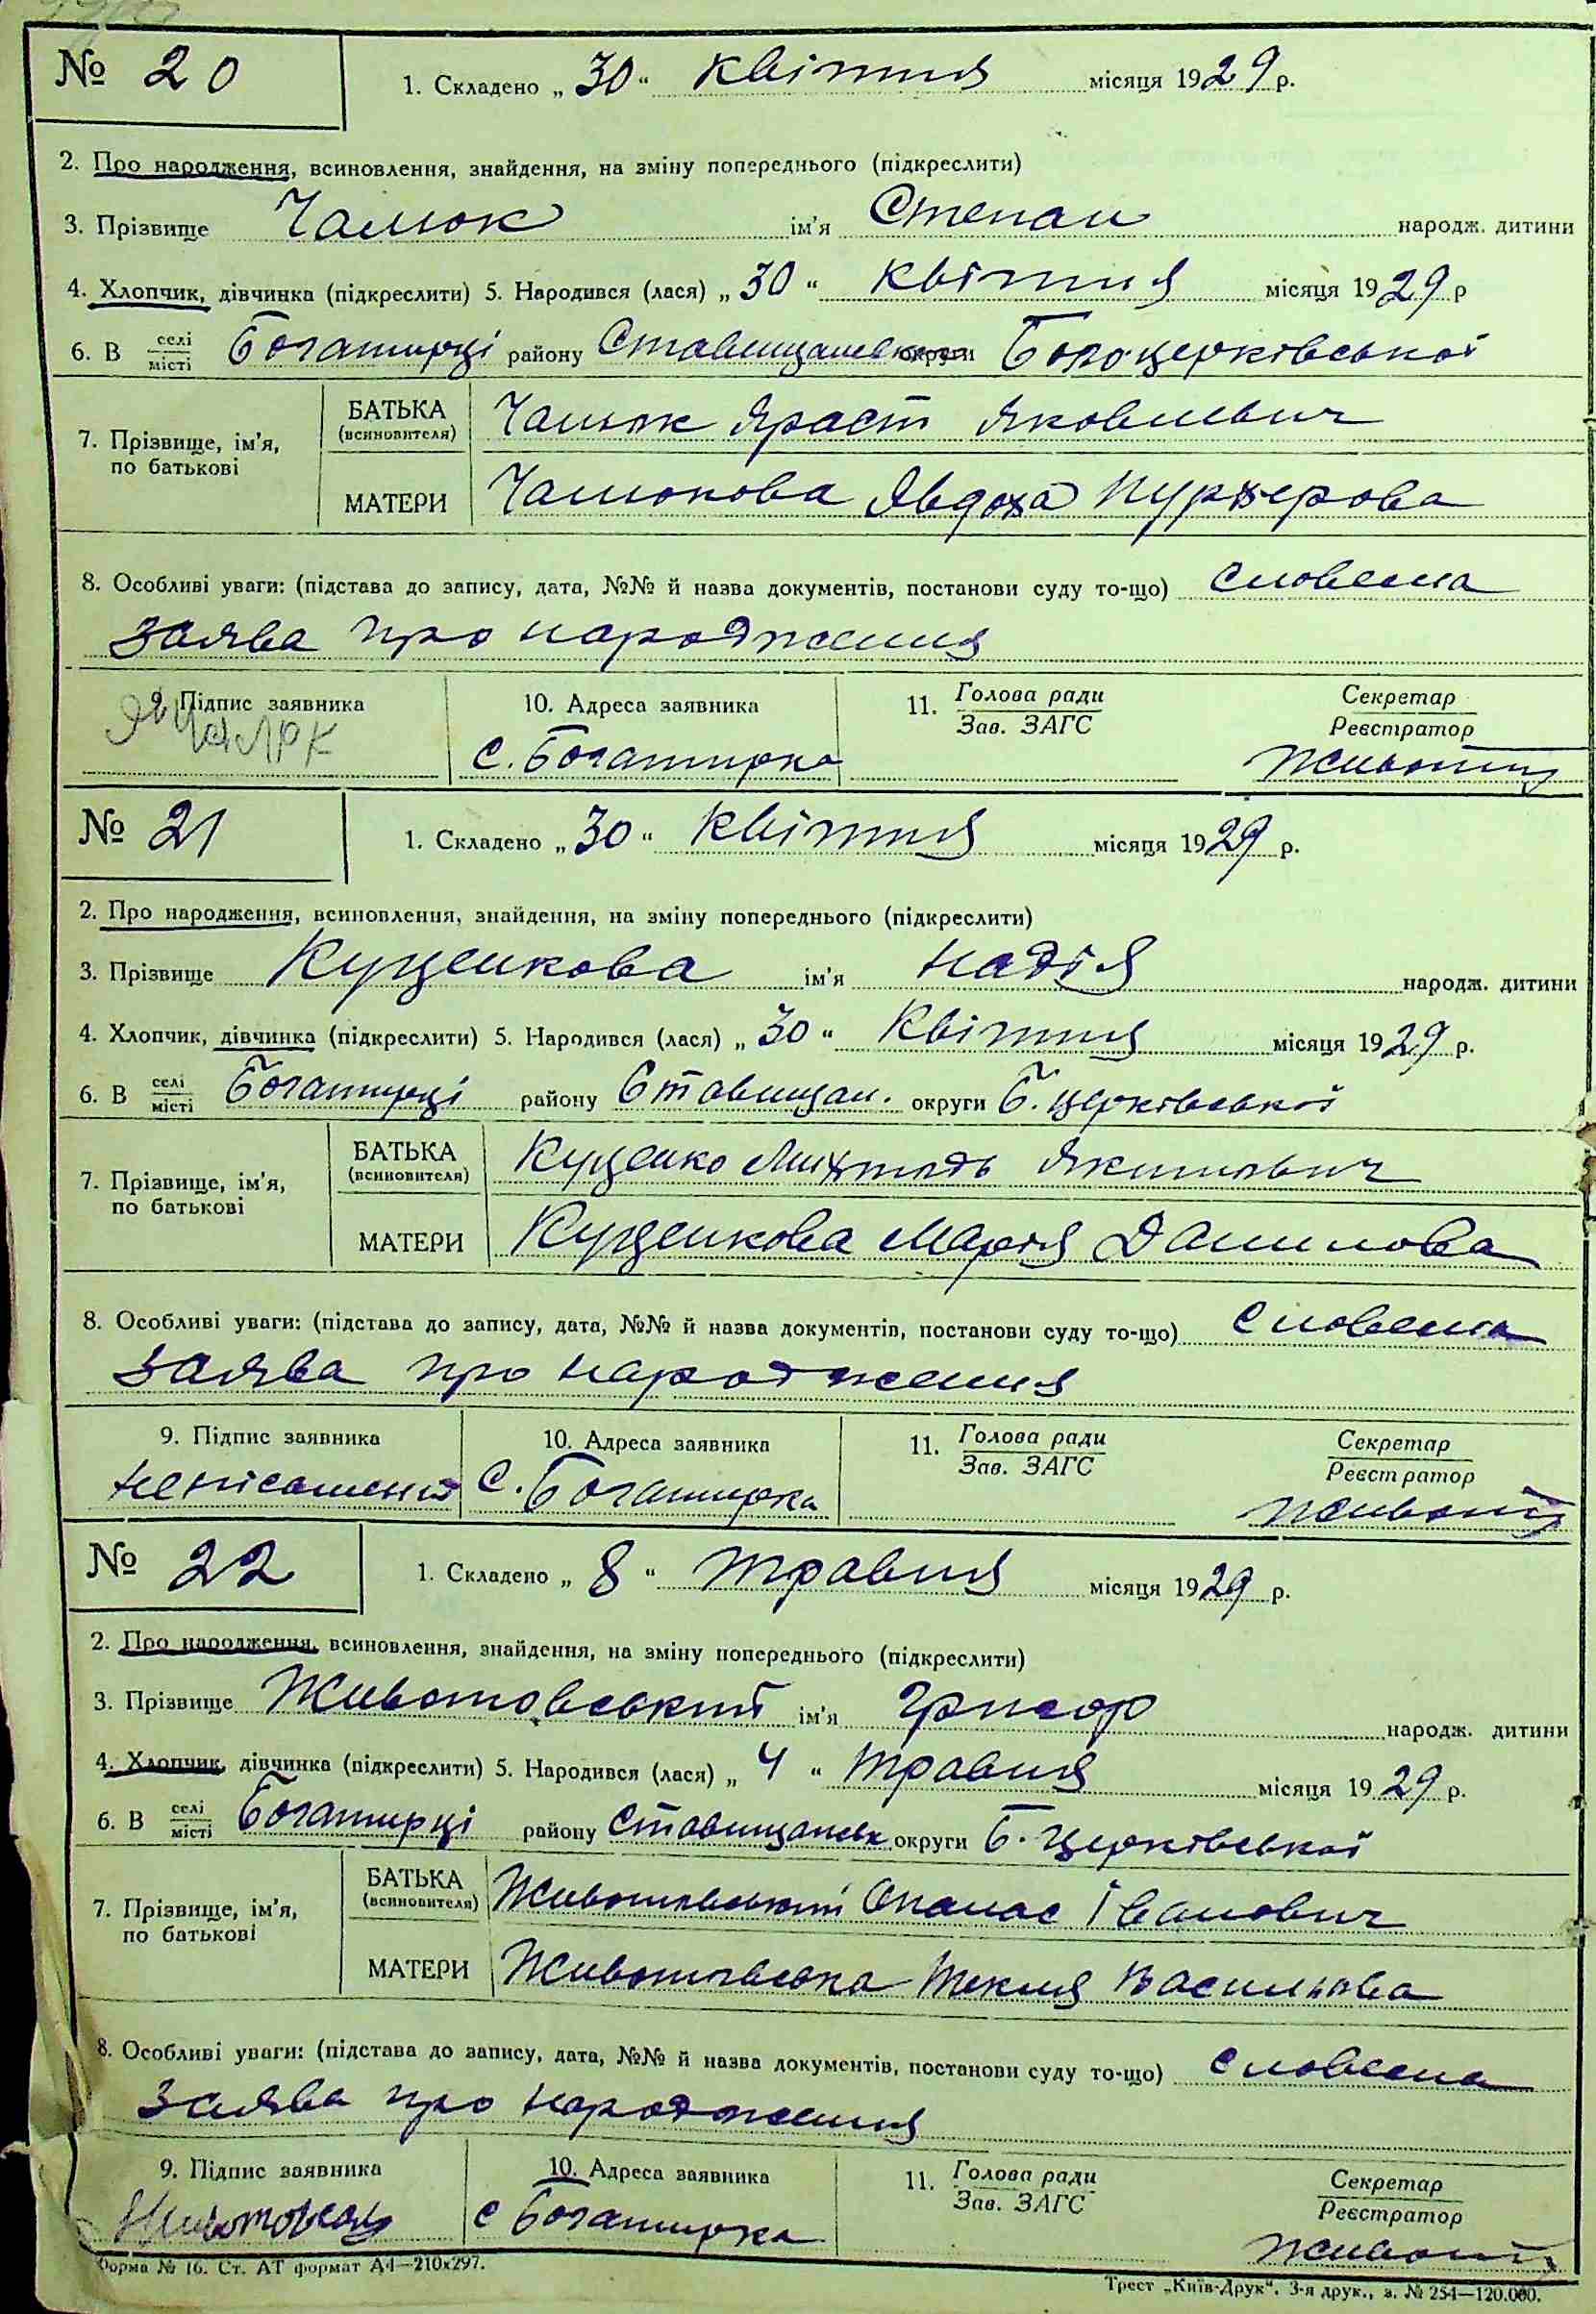 № 20
1. Складено „30“ квітня місяця 1929 р.
2. Про народження, всиновлення, знайдення, на зміну попереднього (підкреслити)
3. Прізвище Чалюк ім'я Степан народж. дитини
4. Хлопчик, дівчинка (підкреслити) 5. Народився (лася) „30“ квітня місяця 1929 р
6. В селі місті Богатирці району Ставищанськ округи Білоцерківської
7. Прізвище, ім'я, по батькові
БАТЬКА (всиновителя) Чалюк Яковлевич
МАТЕРИ Чалюкова Явдоха
8. Особливі уваги: (підстава до запису, дата, №№ й назва документів, постанови суду то-що) Словесна
заява про народження
9. Підпис заявника 10. Адреса заявника 11. Голова ради Зав. ЗАГС Секретар Реєстратор
Чалюк с. Богатирка
№ 21
1. Складено „30“ квітня місяця 1929 р.
2. Про народження, всиновлення, знайдення, на зміну попереднього (підкреслити)
3. Прізвище Куценкова ім'я Надія народж. дитини
4. Хлопчик, дівчинка (підкреслити) 5. Народився (лася) „30“ Квітня місяця 1929 р.
6. В селі місті Богатирці району Ставищан. округи Б. Церківської
7. Прізвище, ім'я, по батькові
БАТЬКА (всиновителя) Куценко Якимович
МАТЕРИ Куценкова Марія Данилова
8. Особливі уваги: (підстава до запису, дата, №№ й назва документів, постанови суду то-що) Словесна
заява про народження
9. Підпис заявника 10. Адреса заявника 11. Голова ради Зав. ЗАГС Секретар Реєстратор
с. Богатирка
№ 22
1. Складено „8“ травня місяця 1929 р.
2. Про народження, всиновлення, знайдення, на зміну попереднього (підкреслити)
3. Прізвище Животовський ім'я народж. дитини
4. Хлопчик, дівчинка (підкреслити) 5. Народився (лася) „4“ травня місяця 1929 р.
6. В селі місті Богатирці району Ставищанськ округи Б. Церківської
7. Прізвище, ім'я, по батькові
БАТЬКА (всиновителя) Животовський Опанас Іванович
МАТЕРИ Животовська Текля Василова
8. Особливі уваги: (підстава до запису, дата, №№ й назва документів, постанови суду то-що) Словесна
заява про народження
9. Підпис заявника 10. Адреса заявника 11. Голова ради Зав. ЗАГС Секретар Реєстратор
с Богатирка
Форма № 16. Ст. АТ формат А4—210х297.
Трест „Київ-Друк“. 3-я друк., з. № 254—120.000.